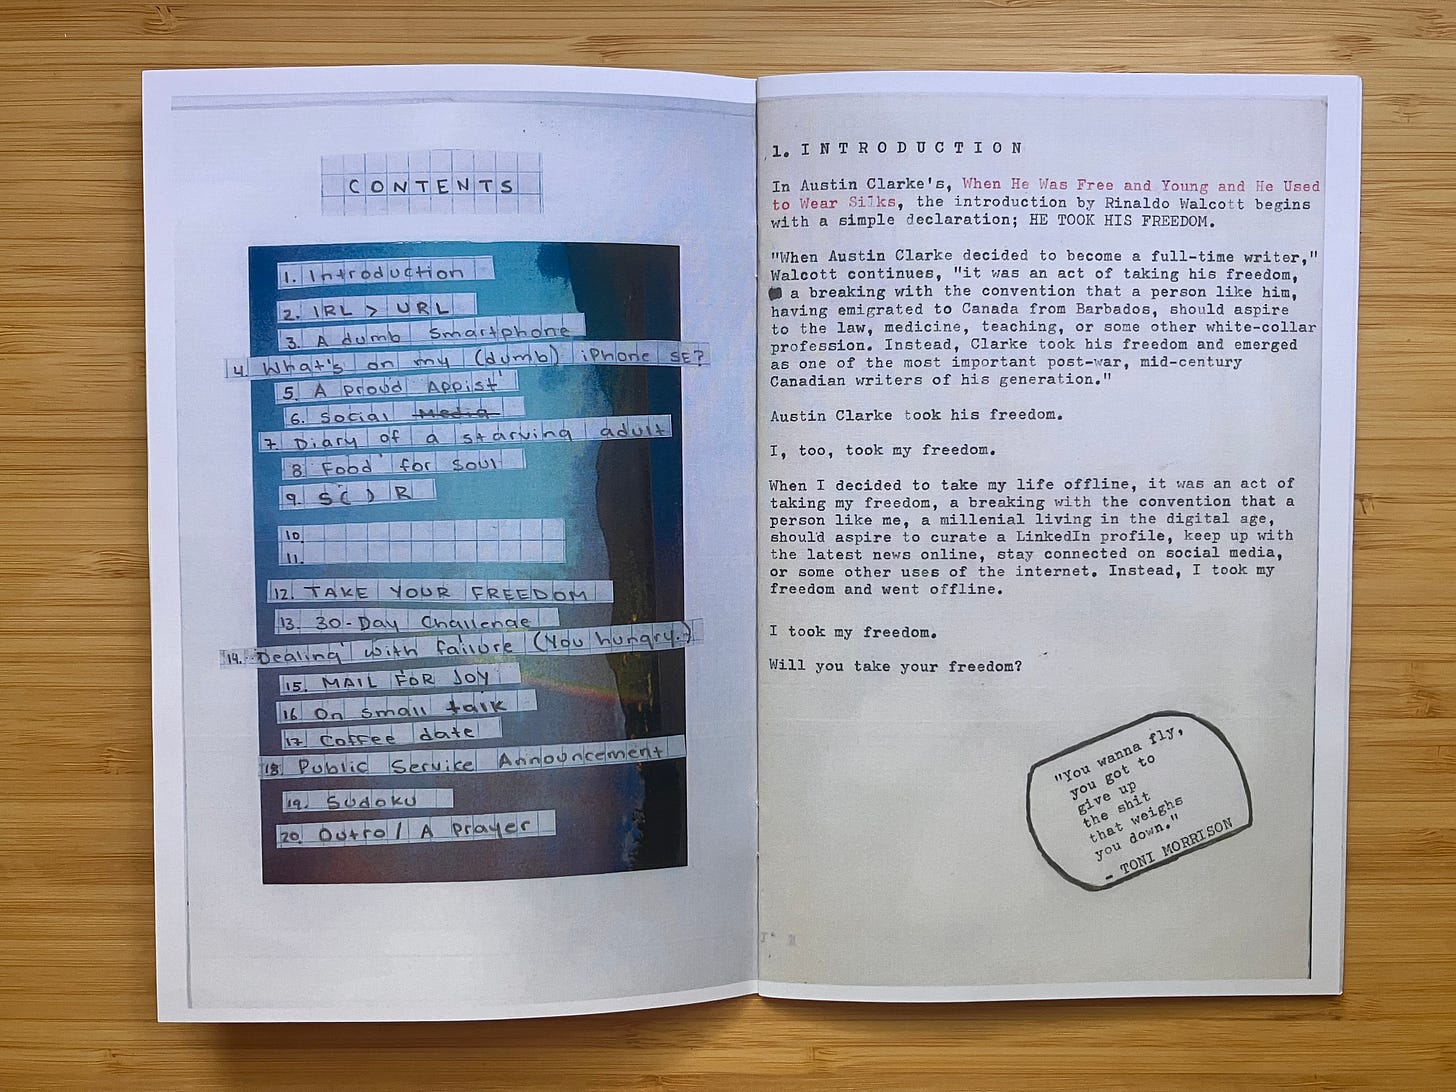 CONTENTS
1. Introduction
2. IRL > URL
3. A dumb smartphone
4. What's on my (dumb) iPhone SE?
5. A proud Appist
6. Social Media
7. Diary of a starving adult
8. Food for Soul
9. S( ) R
10.
11.
12. TAKE YOUR FREEDOM
13. 30-Day Challenge
14. Dealing with failure (You hungry?)
15. MAIL FOR JOY
16. On small talk
17. Coffee date
18. Public Service Announcement
19. Sudoku
20. Outro / A prayer
1. INTRODUCTION
In Austin Clarke's, When He Was Free and Young and He Used
to Wear Silks, the introduction by Rinaldo Walcott begins
with a simple declaration; HE TOOK HIS FREEDOM.
"When Austin Clarke decided to become a full-time writer,"
Walcott continues, "it was an act of taking his freedom,
a breaking with the convention that a person like him,
having emigrated to Canada from Barbados, should aspire
to the law, medicine, teaching, or some other white-collar
profession. Instead, Clarke took his freedom and emerged
as one of the most important post-war, mid-century
Canadian writers of his generation."
Austin Clarke took his freedom.
I, too, took my freedom.
When I decided to take my life offline, it was an act of
taking my freedom, a breaking with the convention that a
person like me, a millenial living in the digital age,
should aspire to curate a LinkedIn profile, keep up with
the latest news online, stay connected on social media,
or some other uses of the internet. Instead, I took my
freedom and went offline.
I took my freedom.
Will you take your freedom?
"You wanna fly,
you got to
give up
the shit
that weighs
you down."
- TONI MORRISON